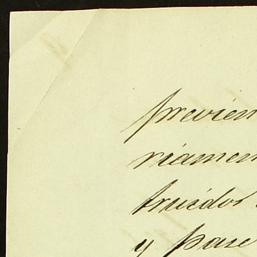 previen
riamen
truidos
y pase